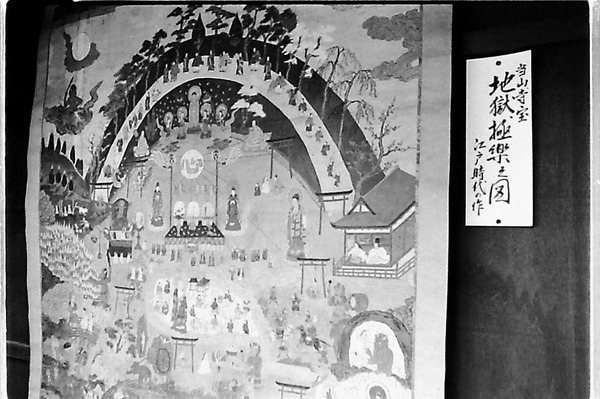 当山寺宝
地獄、極樂之図
江戸時代の作